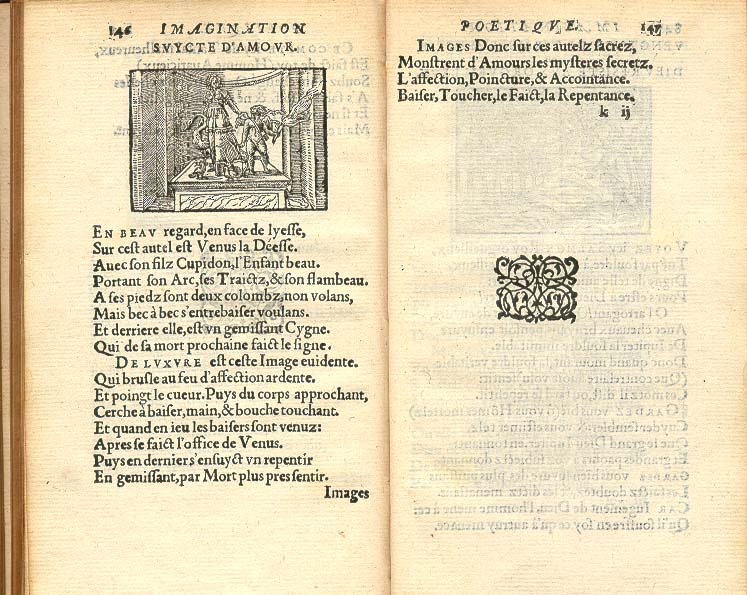 146 IMAGINATION
SVYCTE D'AMOVR.
EN BEAV regard, en face de lyesse,
Sur cest autel est Venus la Déesse.
Auec son filz Cupidon, l'Enfant beau.
Portant son Arc, ses Traictz, & son flambeau.
A ses piedz sont deux colombz, non volans,
Mais bec à bec s'entrebaiser voulans.
Et derriere elle, est vn gemissant Cygne.
Qui de sa mort prochaine faict le signe.
DE LVXVRE est ceste Image euidente.
Qui brusle au feu d'affection ardente.
Et poingt le cueur. Puys du corps approchant,
Cerche à baiser, main, & bouche touchant.
Et quand en ieu les baisers sont venuz:
Apres se faict l'office de Venus.
Puys en dernier s'ensuyct vn repentir
En gemissant, par Mort plus pres sentir.
Images
POETIQVE. 147
IMAGES Donc sur ces autelz sacrez,
Monstrent d'Amours les mysteres secretz.
L'affection, Poincture, & Accointance.
Baiser, Toucher, le Faict, la Repentance.
k ij